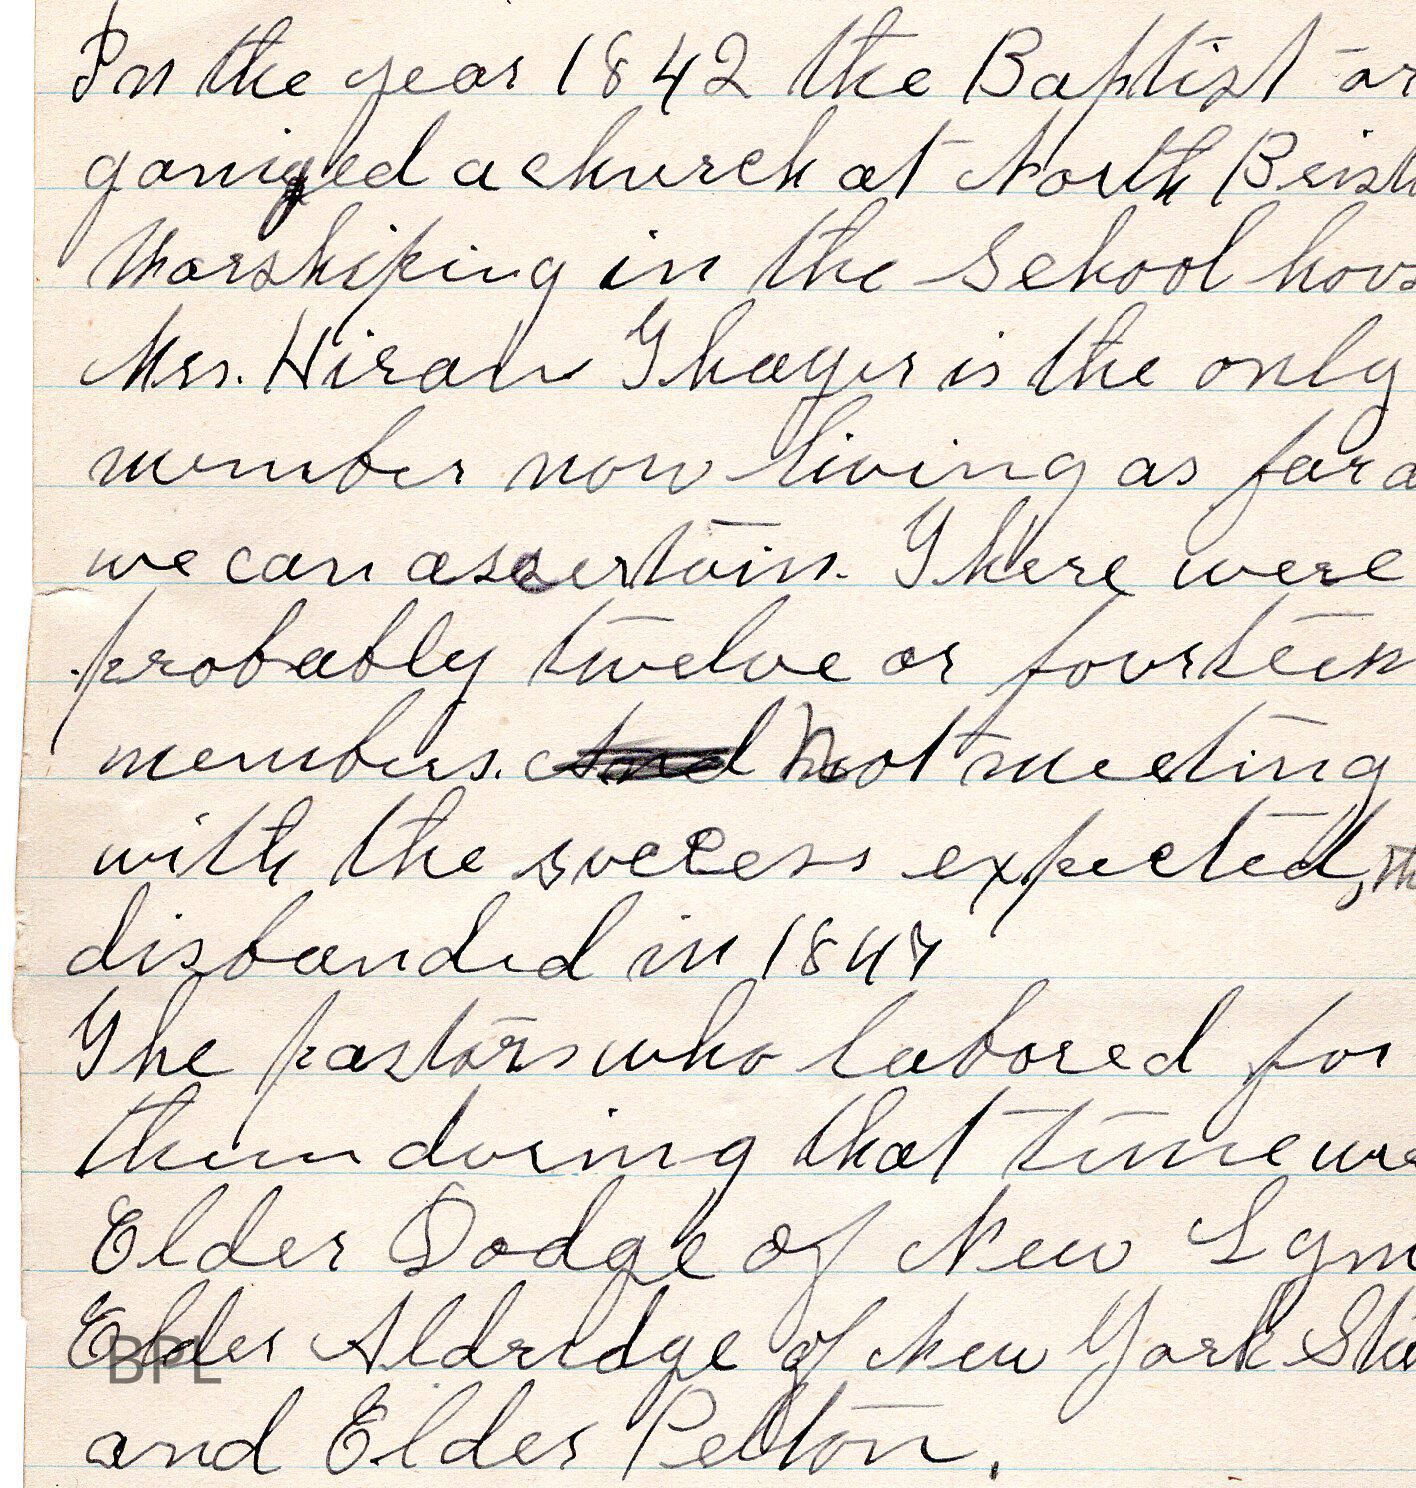 In the year 1842 the Baptist or
ganized a church at North Brist
Worshiping in the School hous
Mrs. Hiram Thayer is the only
member now living as far a
we can ascertain. There were
probably twelve or fourteen
members. And Not meeting
with the success expected, th
disbanded in 1847
The pastors who labored for
them during that time we
Elder Dodge of New Lym
Elder Aldridge of New York Sta
and Elder Pelton.
BPL